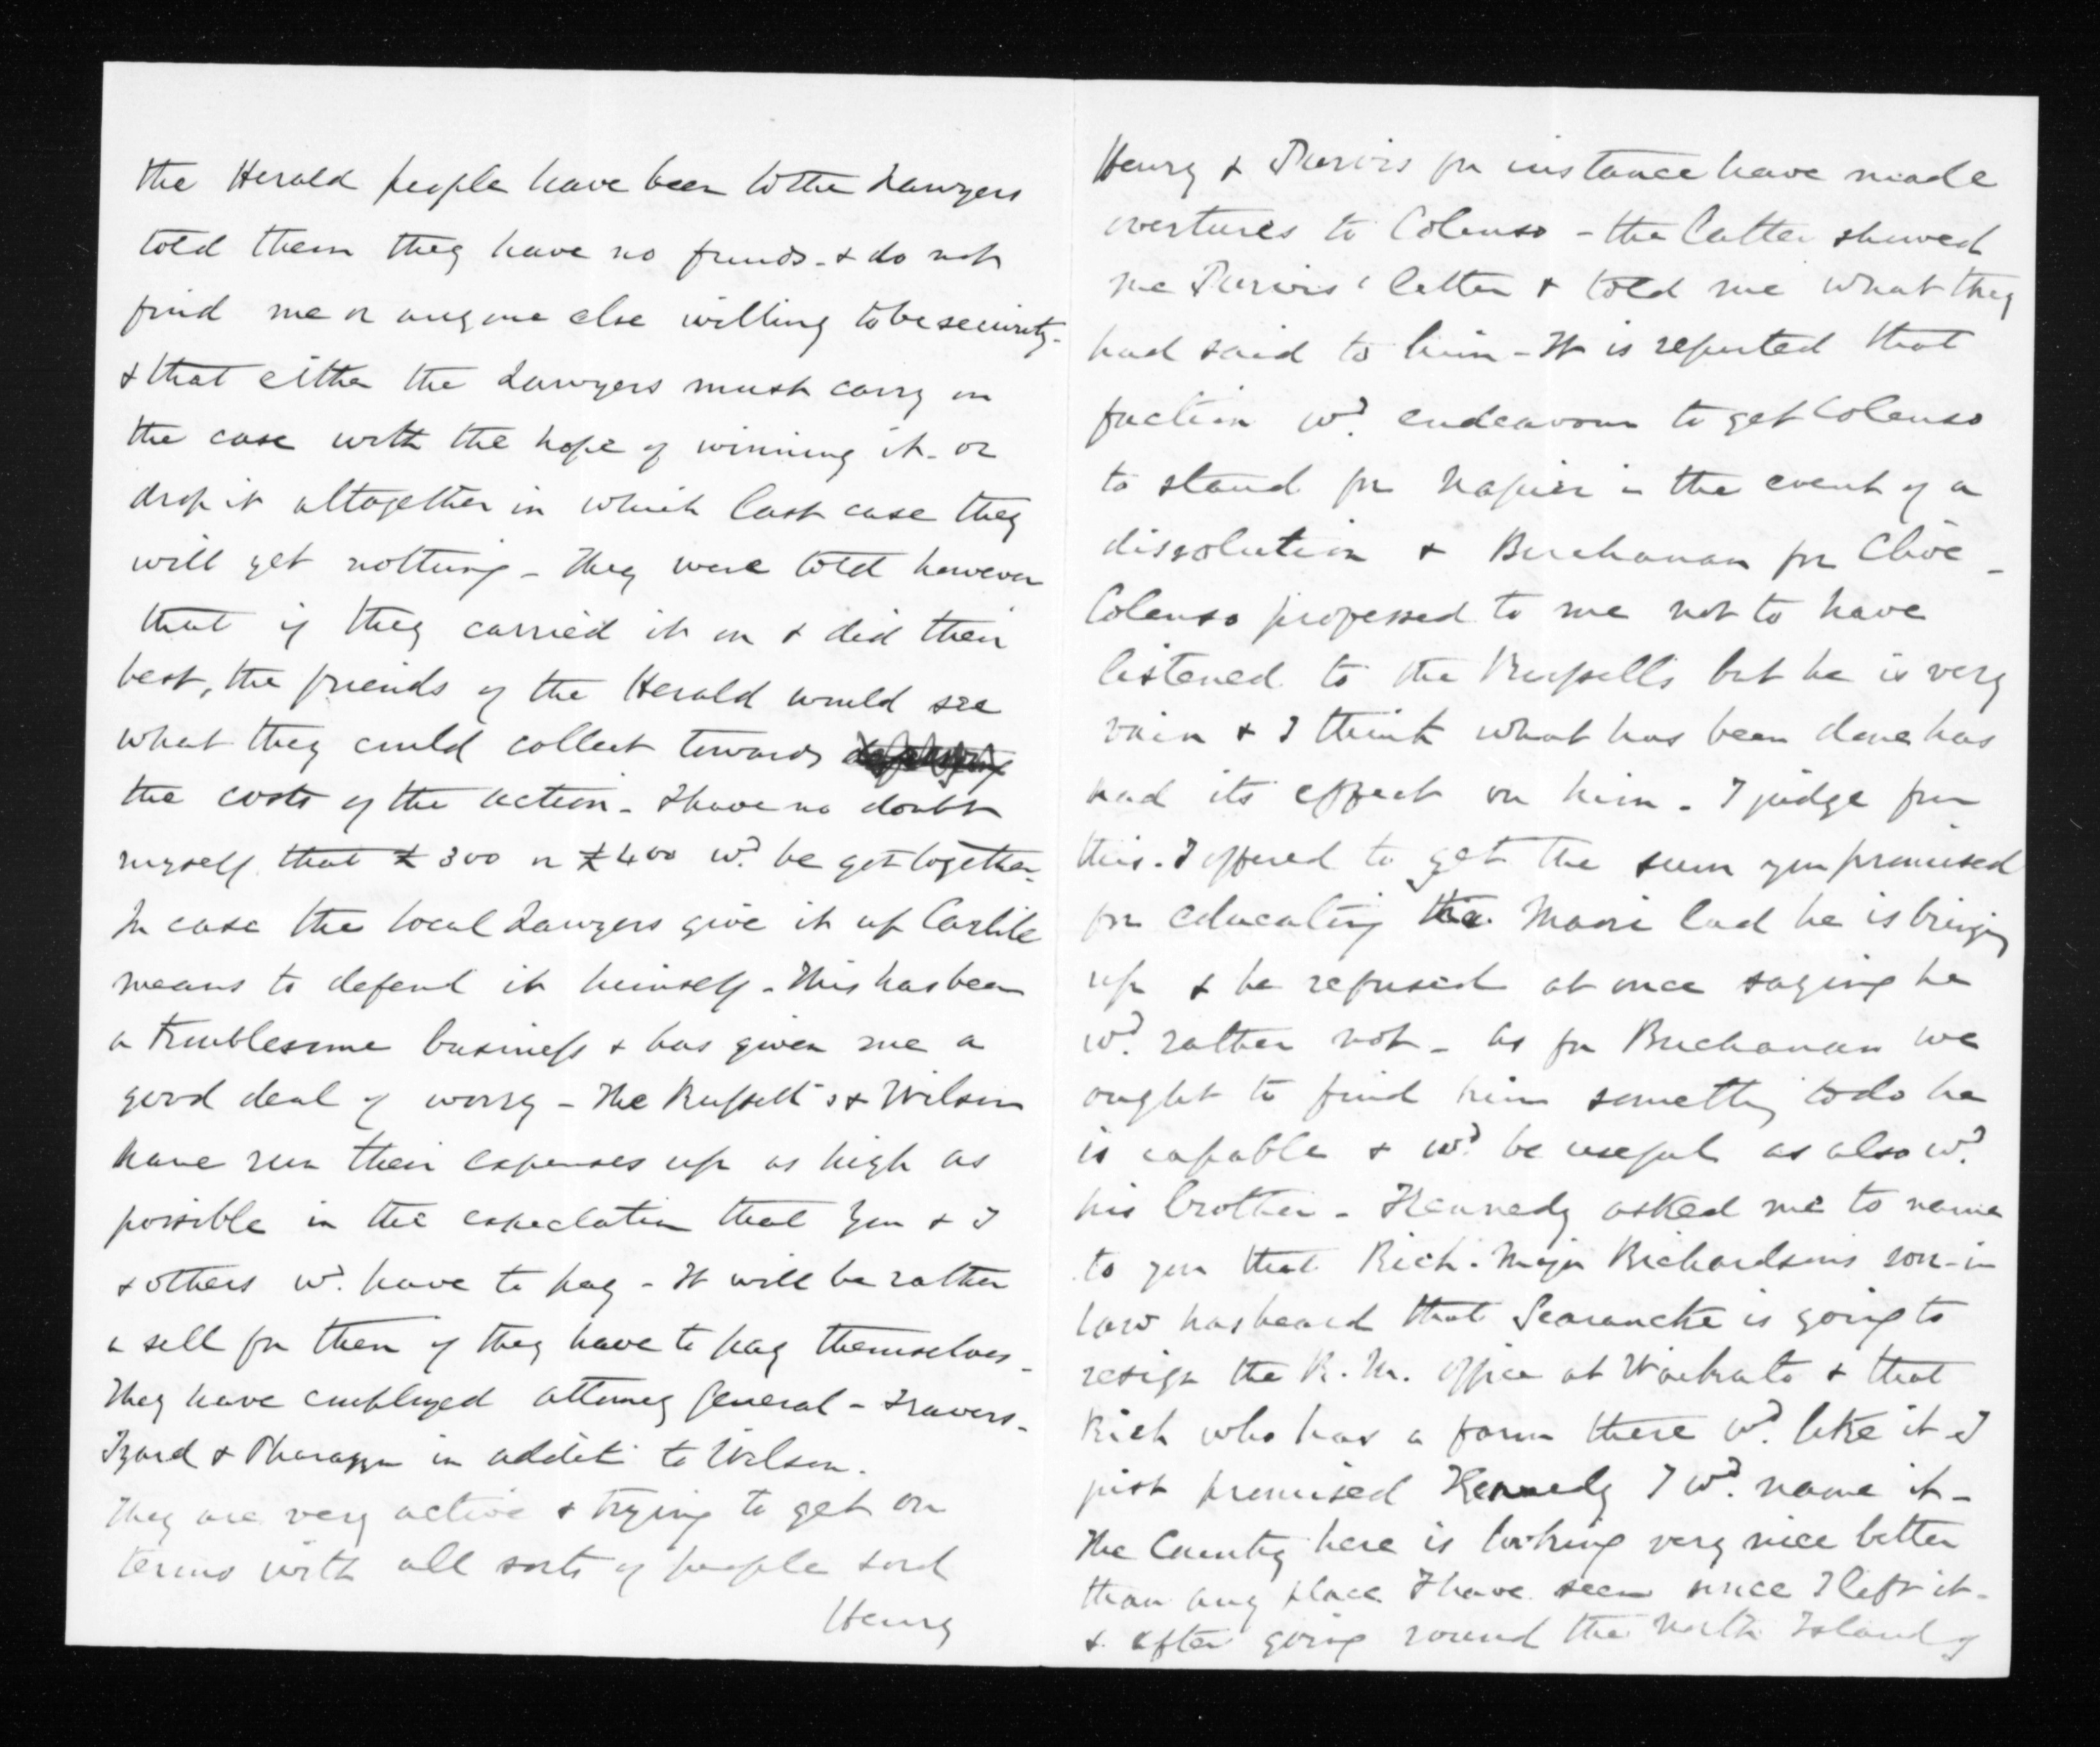 the Herald people have been to the Lawyers
told them they have no funds - & do not
find me or anyone else willing to be security -
& that either the Lawyers must carry on
the case with the hope of winning it - or
drop it altogether in which last case they
will get nothing - They were told however
that if they carried it on & did their
best, the friends of the Herald would see
what they could collect towards
the costs of the action - I have no doubt
myself that £300 or £400 wd. be got together.
In case the local Lawyers give it up Carlile
means to defend it himself - This has been
a troublesome business & has given me a
good deal of worry - The Russell's & Wilson
have run their expenses up as high as
possible in the expectation that you & I
& others wd. have to pay - It will be rather
a sell for them if they have to pay themselves -
They have employed attorney General - Travers -
Izard & Pharazyn in addit. to Wilson.
They are very active & trying to get on
terms with all sorts of people
Henry
Henry & Purvis for instance have made
overtures to Colenso - the latter showed
me Purvis' letter & told me what they
had said to him - It is reported that
faction wd. endeavour to get Colenso
to stand for Napier in the event of a
dissolution & Buchanan for Clive -
Colenso professed to me not to have
listened to the Russells but he is very
vain & I think what has been done has
had its effect on him - I judge from
this. I offered to get the sum you promised
for educating the Maori lad he is bringing
up & he refused at once saying he
wd. rather not - As for Buchanan we
ought to find him somethg to do he
is capable & wd. be useful as also wd.
his brother - Kennedy asked me to name
to you that Rich. Major Richardson's son-in
law has heard that Searancke is going to
resign the R.M. office at Waikato & that
Rich who has a farm there wd. like it I
just promised Kennedy I wd. name it -
The Country here is looking very nice better
than any place I have seen since I left it -
& after going round the North Island of